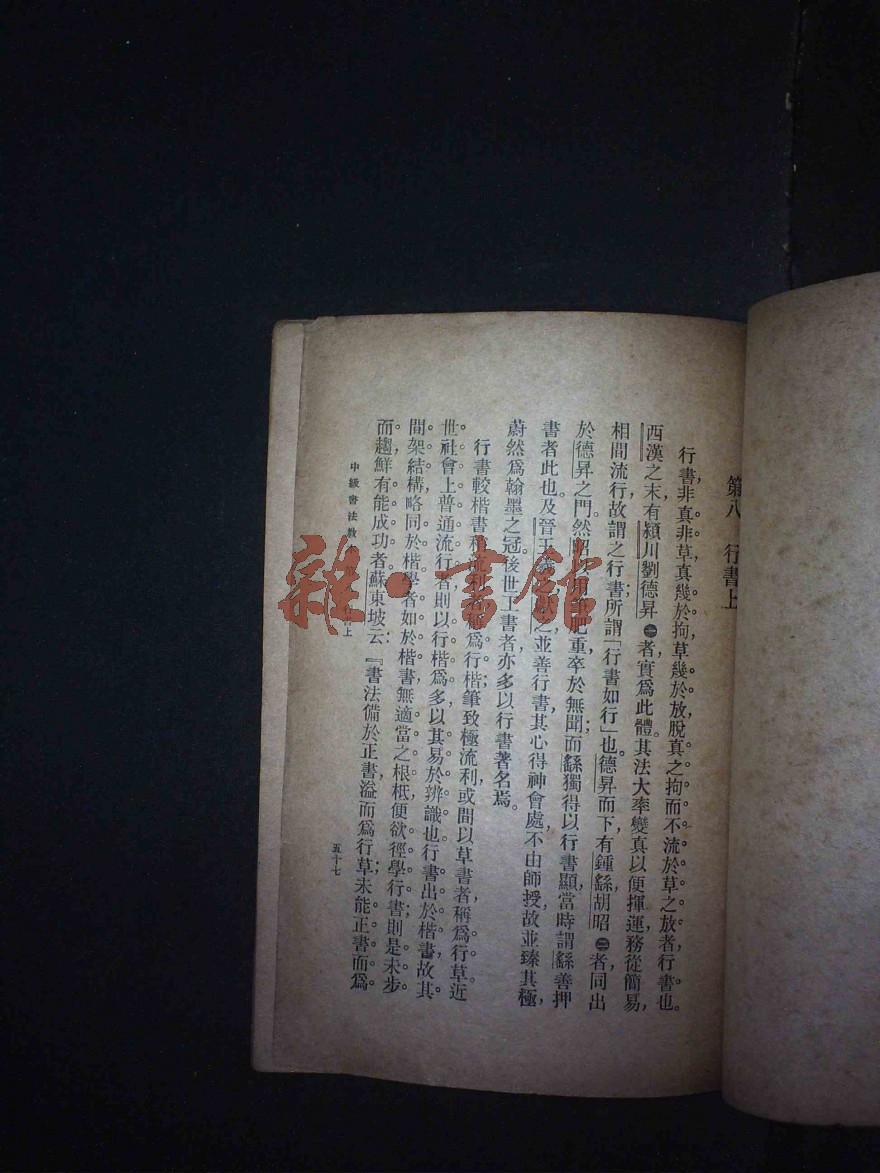 第八 行書上
行書非真非草真幾於拘草幾於放脫真之拘而不流於草之放者行書也。
西漢之末有潁川劉德昇㊀者實爲此體其法大率變真以便揮運務從簡易,
相間流行故謂之行書所謂「行書如行」也。德昇而下有鍾繇胡昭㊁者同出
於德昇之門然昭用筆肥重卒於無聞;而繇獨得以行書顯當時謂繇善押
書者此也及晉王羲獻之並善行書其心得神會處不由師授故並臻其極,
蔚然爲翰墨之冠後世工書者亦多以行書著名焉。
行書較楷書稍流利者稱爲行楷;筆致極流利或間以草書者稱爲行草近
世社會上普通流行者則以行楷爲多以其易於辨識也行書出於楷書故其
間架結構略同於楷學者如於楷書無適當之根柢便欲徑學行書則是未步
而趨鮮有能成功者蘇東坡云:『書法備於正書溢而爲行草;未能正書而爲
中級書法教 上
五十七
雜·書館